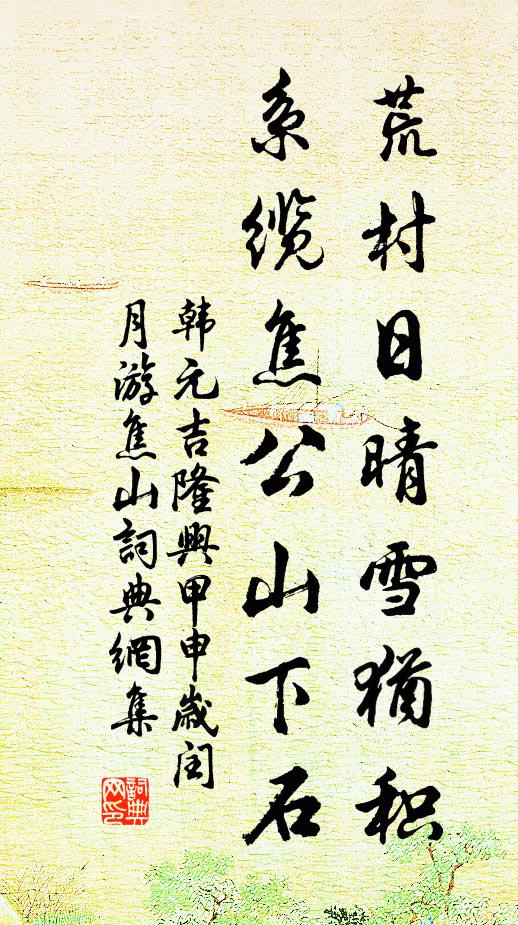 荒村日晴雪犹积
系缆焦公山下石
韩元吉隆興甲申歲闰
月游焦山詞典網集
詞典
网印